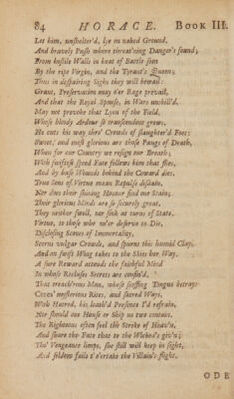 84 HORACE. BOOK III.
Let him, unshelter'd, lye in naked Ground,
And bravely Push where threat'ning Danger's found;
From hostile Walls in heat of Battle seen
By the ripe Virgin, and the Tyrant's Queen;
Thus in despairing Sighs they will bewail:
Grant, Preservation may o'er Rage prevail,
And that the Royal Spouse, in Wars unskill'd,
May not provoke that Lyon of the Field,
Whose bloody Ardour so transcendent grown,
He cuts his way thro' Crowds of slaughter'd Foes:
Sweet, and most glorious are those Pangs of Death,
When for our Country we resign our Breath:
With swiftest speed Fate follows him that flies,
And by base Wounds behind the Coward dies.
True Sons of Virtue mean Repulse disdain,
Nor does their shining Honour feed one Stain;
Their glorious Minds are so securely great,
They neither swell, nor sink at turns of State.
Virtue, to those who ne'er deserve to Die,
Disclosing Scenes of Immortality,
Scorns vulgar Crowds, and spurns this humid Clay,
And on swift Wing takes to the Skies her Way.
A sure Reward attends the faithful Mind
In whose Recluses Secrets are confin'd.
That treach'rous Man, whose scoffing Tongue betrays
Ceres' mysterious Rites, and sacred Ways,
With Hatred, his loath'd Presence I'd refrain,
Nor should one House or Ship us two contain.
The Righteous often feel the Stroke of Heav'n,
And share the Fate that to the Wicked's giv'n;
Tho' Vengeance limps, she still will keep in sight,
And seldom fails t'o'ertake the Villain's flight.
ODE